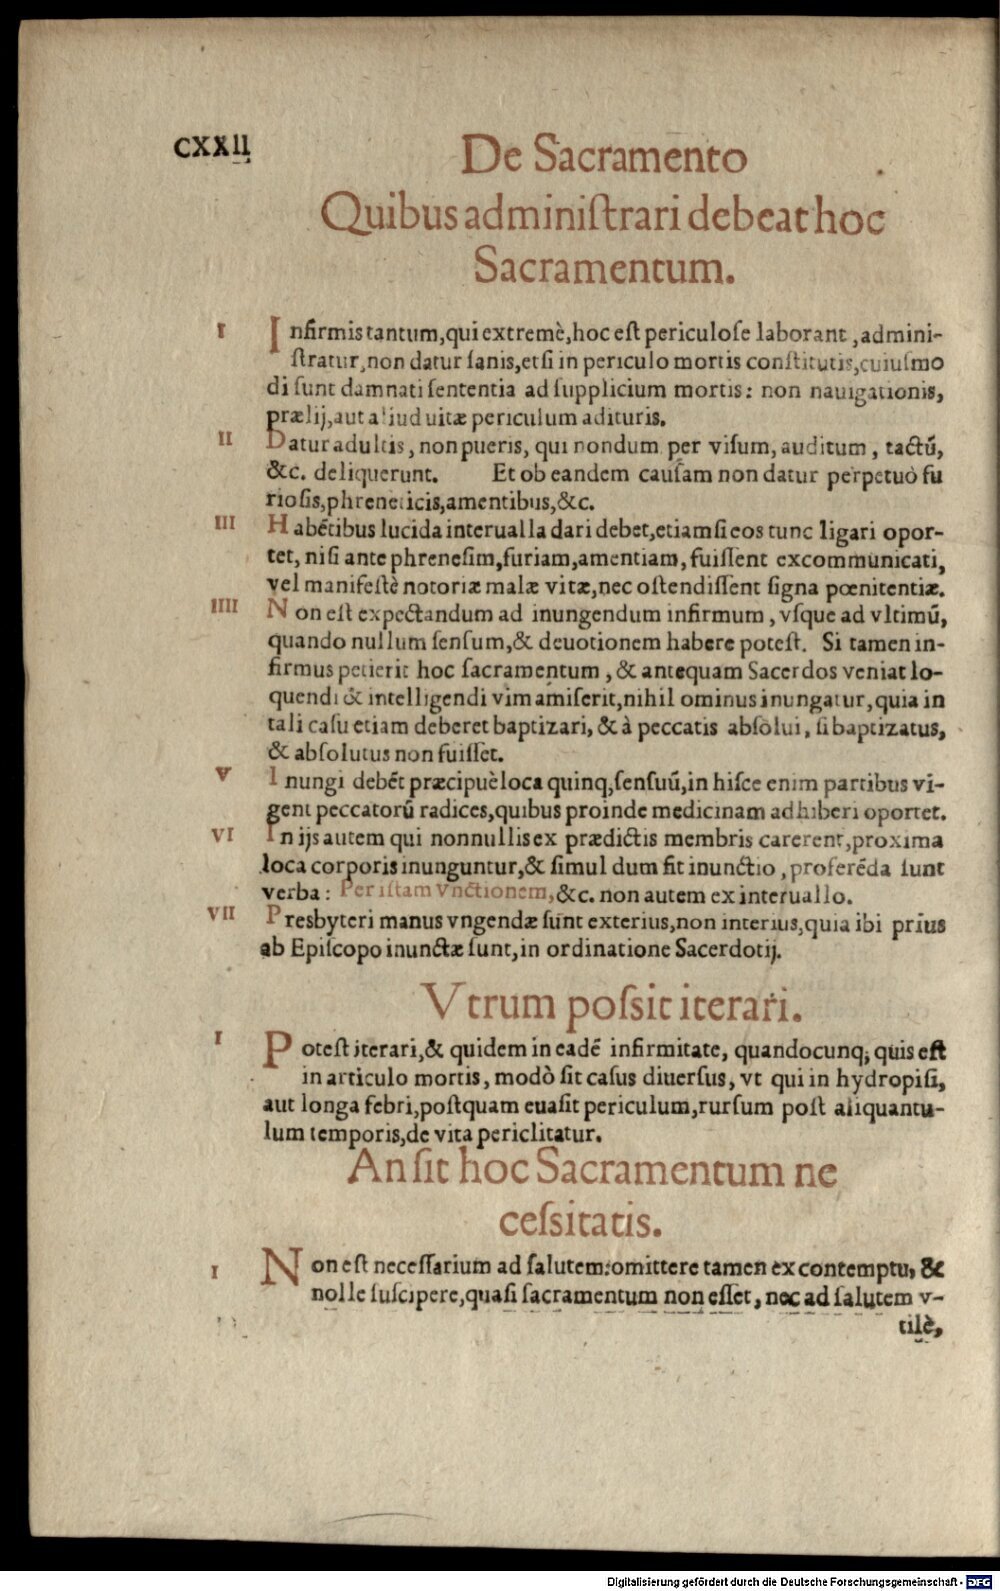 CXXII
De Sacramento
Quibus adminiſtrari debeat hoc
Sacramentum.
I Infirmis tantum, qui extremè, hoc eſt periculoſe laborant, admini-
ſtratur, non datur ſanis, etſi in periculo mortis conſtitutis, cuiuſmo
di ſunt damnati ſententia ad ſupplicium mortis: non nauigationis,
prælij, aut aliud uitæ periculum adituris.
II Datur adultis, non pueris, qui nondum per viſum, auditum, tactū,
&c. deliquerunt. Et ob eandem cauſam non datur perpetuò fu
rioſis, phreneticis, amentibus, &c.
III Habētibus lucida interualla dari debet, etiamſi eos tunc ligari opor-
tet, niſi ante phreneſim, furiam, amentiam, fuiſſent excommunicati,
vel manifeſtè notoriæ malæ vitæ, nec oſtendiſſent ſigna pœnitentiæ.
IIII Non eſt expectandum ad inungendum infirmum, vſque ad vltimū,
quando nullum ſenſum, & deuotionem habere poteſt. Si tamen in-
firmus petierit hoc ſacramentum, & antequam Sacerdos veniat lo-
quendi & intelligendi vim amiſerit, nihil ominus inungatur, quia in
tali caſu etiam deberet baptizari, & à peccatis abſolui, ſi baptizatus,
& abſolutus non fuiſſet.
V Inungi debēt præcipuè loca quinq; ſenſuū, in hiſce enim partibus vi-
gent peccatorū radices, quibus proinde medicinam adhiberi oportet.
VI In ijs autem qui nonnullis ex prædictis membris carerent, proxima
loca corporis inunguntur, & ſimul dum fit inunctio, proferēda ſunt
verba: Per iſtam Vnctionem, &c. non autem ex interuallo.
VII Presbyteri manus vngendæ ſunt exterius, non interius, quia ibi prius
ab Epiſcopo inunctæ ſunt, in ordinatione Sacerdotij.
Vtrum poſsit iterari.
I Poteſt iterari, & quidem in eadē infirmitate, quandocunq; quis eſt
in articulo mortis, modò ſit caſus diuerſus, vt qui in hydropiſi,
aut longa febri, poſtquam euaſit periculum, rurſum poſt aliquantu-
lum temporis, de vita periclitatur.
An ſit hoc Sacramentum ne
ceſsitatis.
I Non eſt neceſſarium ad ſalutem: omittere tamen ex contemptu, &
nolle ſuſcipere, quaſi ſacramentum non eſſet, nec ad ſalutem v-
tilè,
Digitalisierung gefördert durch die Deutsche Forschungsgemeinschaft - DFG